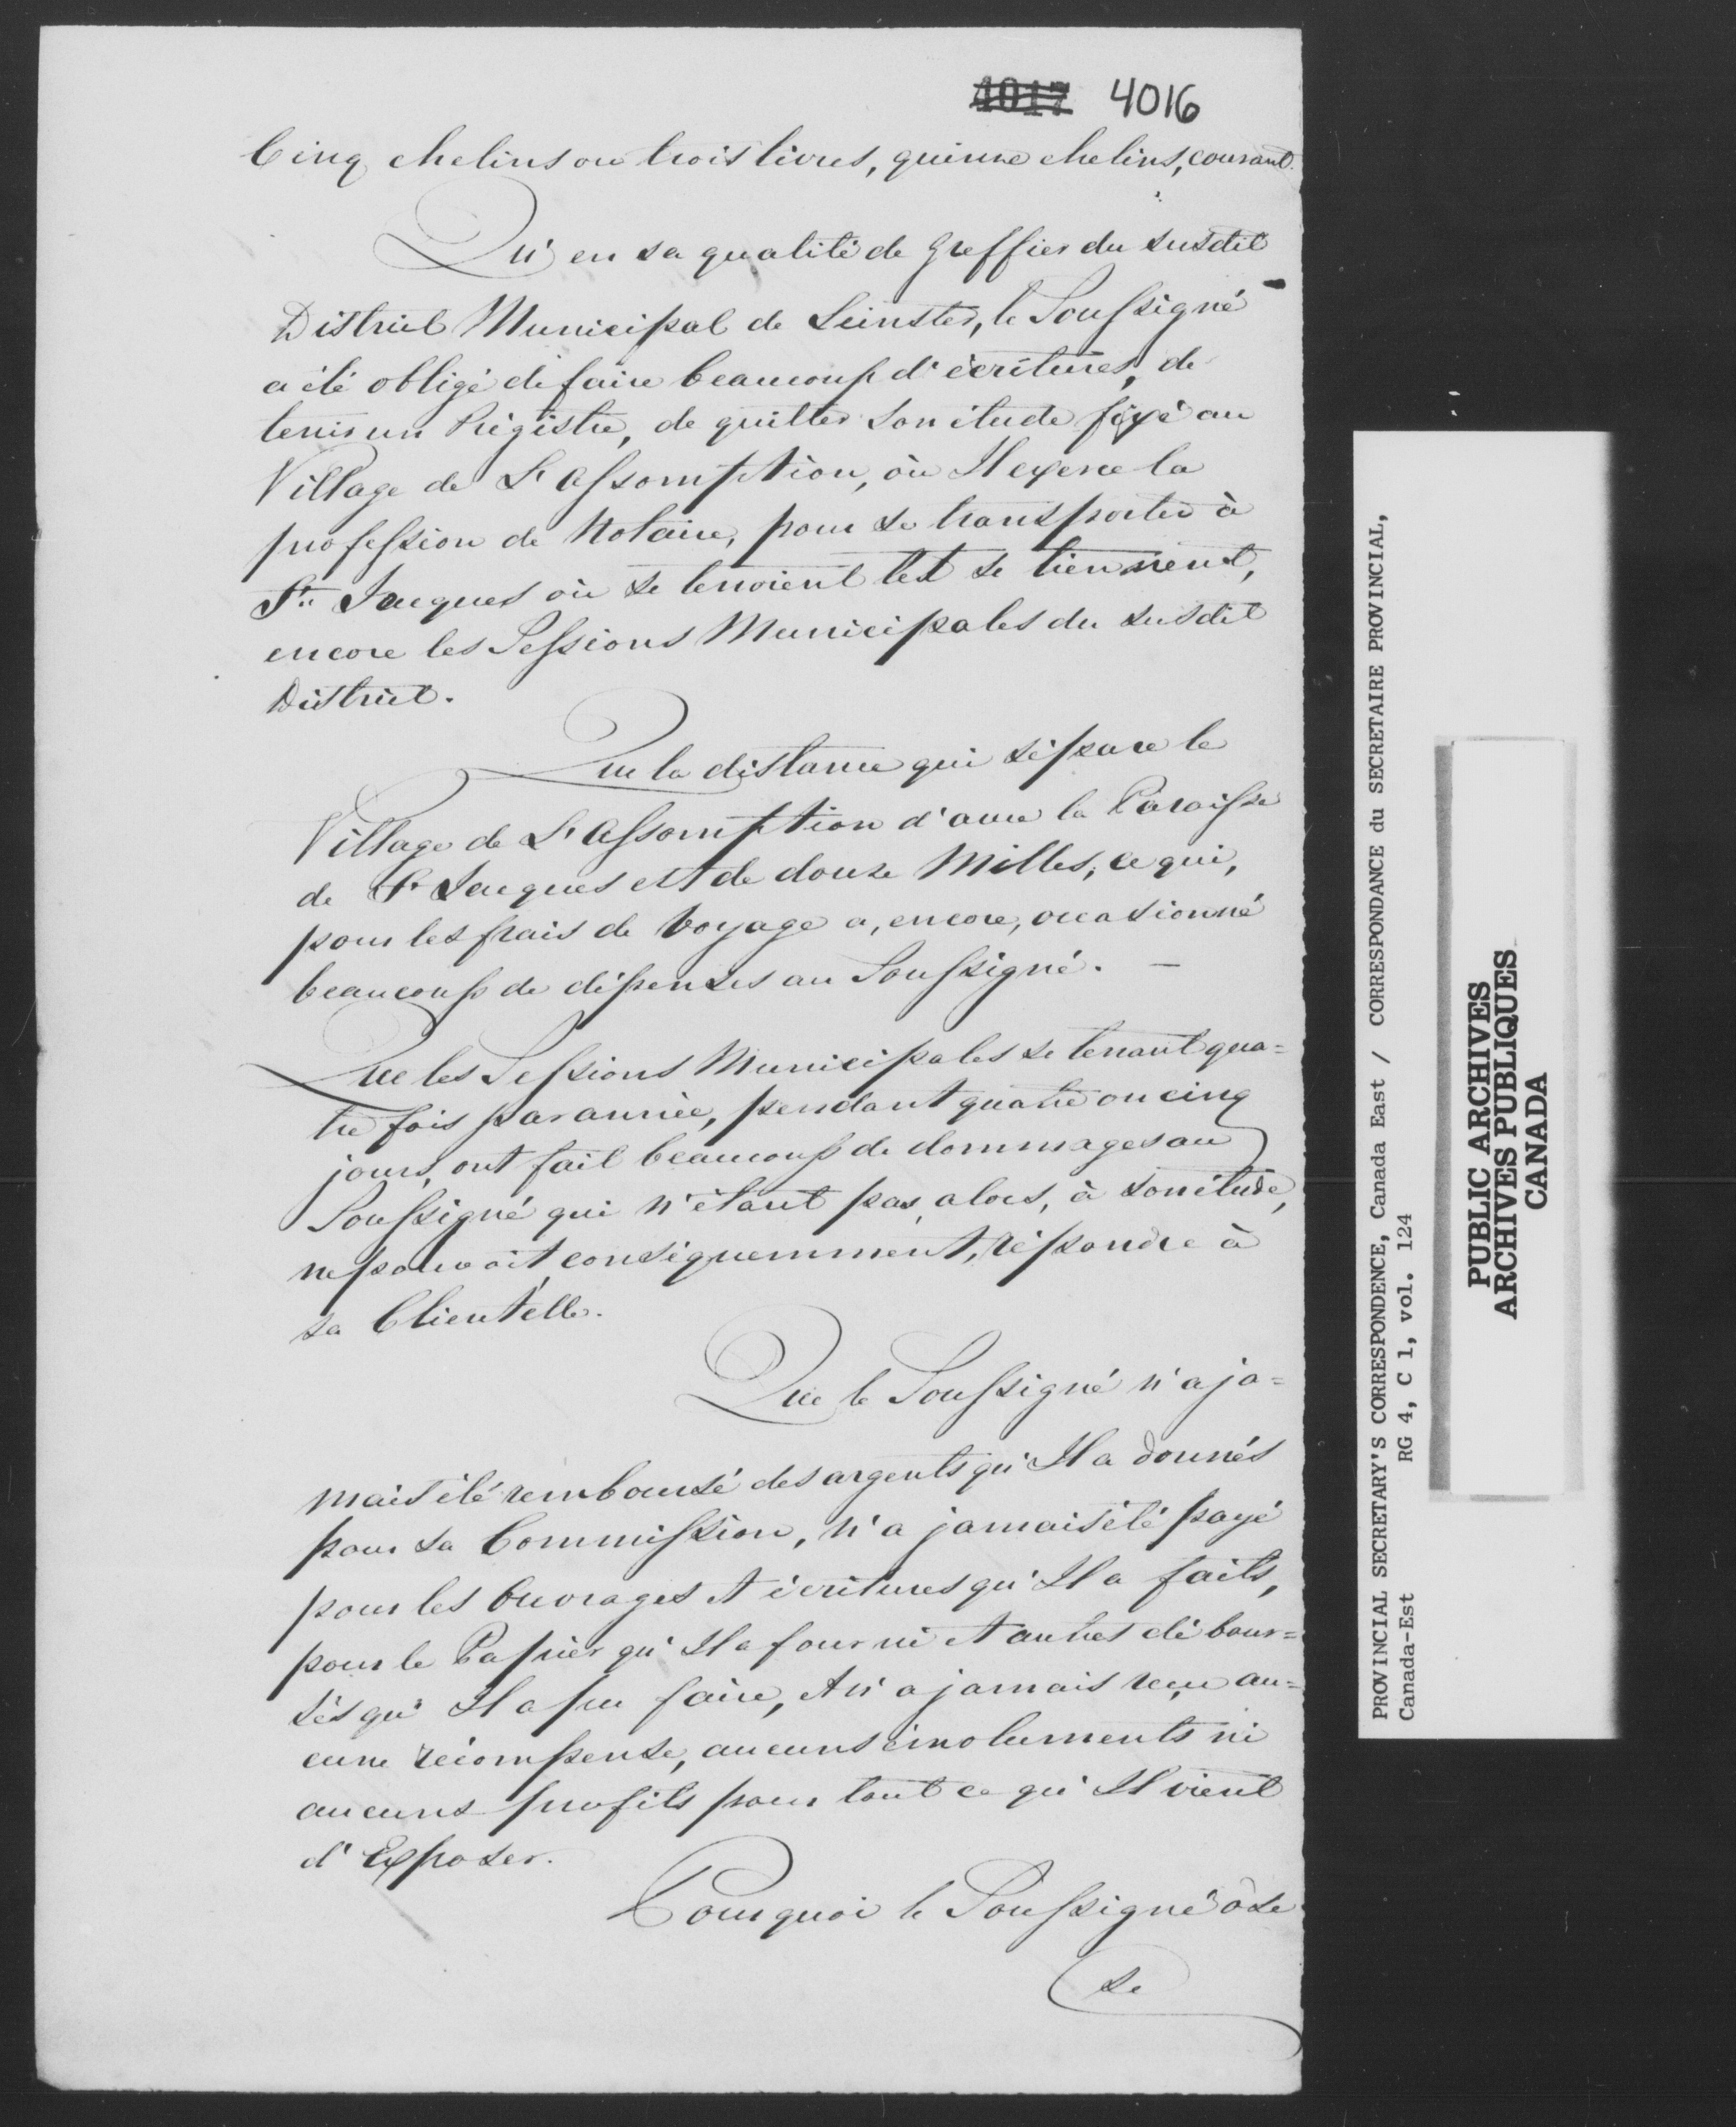 4017 4016
Cinq chelins ou trois livres, quinze chelins, courant.
Qu'en sa qualité de Greffier du susdit
District Municipal de Leinster, le Soussigné
a été obligé de faire beaucoup d'écritures, de
tenir un Régistre, de quitter son étude fixé au
Village de L'Assomption, où Il exerce la
profession de Notaire, pour se transporter à
St. Jacques où se tenoient et se tiennent,
encore les Sessions Municipales du susdit
District.
Que la distance qui sépare le
Village de L'Assomption d'avec la Paroisse
de St Jacques est de douze Milles, ce qui,
pour les frais de Voyage a, encore, occasionné
beaucoup de dépenses au Soussigné. —
Que les Sessions Municipales se tenant qua=
tre fois par année, pendant quatre ou cinq
jours, ont fait beaucoup de dommages au
Soussigné qui n'étant pas, alors, à son étude,
ne pouvoit, conséquemment, répondre à
sa Clientelle.
Que le Soussigné n'a ja=
mais été remboursé des argents qu'Il a donnés
pour sa Commission, n'a jamais été payé
pour les Ouvrages et écritures qu'Il a faits,
pour le Papier qu'Il a fourni et autres débour=
sés qu'Il a pu faire, et n'a jamais reçu au=
cune récompense, aucuns émoluments ni
aucuns profits pour tout ce qu'Il vient
d'Exposer.
Pourquoi le Soussigné ôse
se
PROVINCIAL SECRETARY'S CORRESPONDENCE, Canada East / CORRESPONDANCE du SECRETAIRE PROVINCIAL,
Canada-Est RG 4, C 1, vol. 124
PUBLIC ARCHIVES
ARCHIVES PUBLIQUES
CANADA